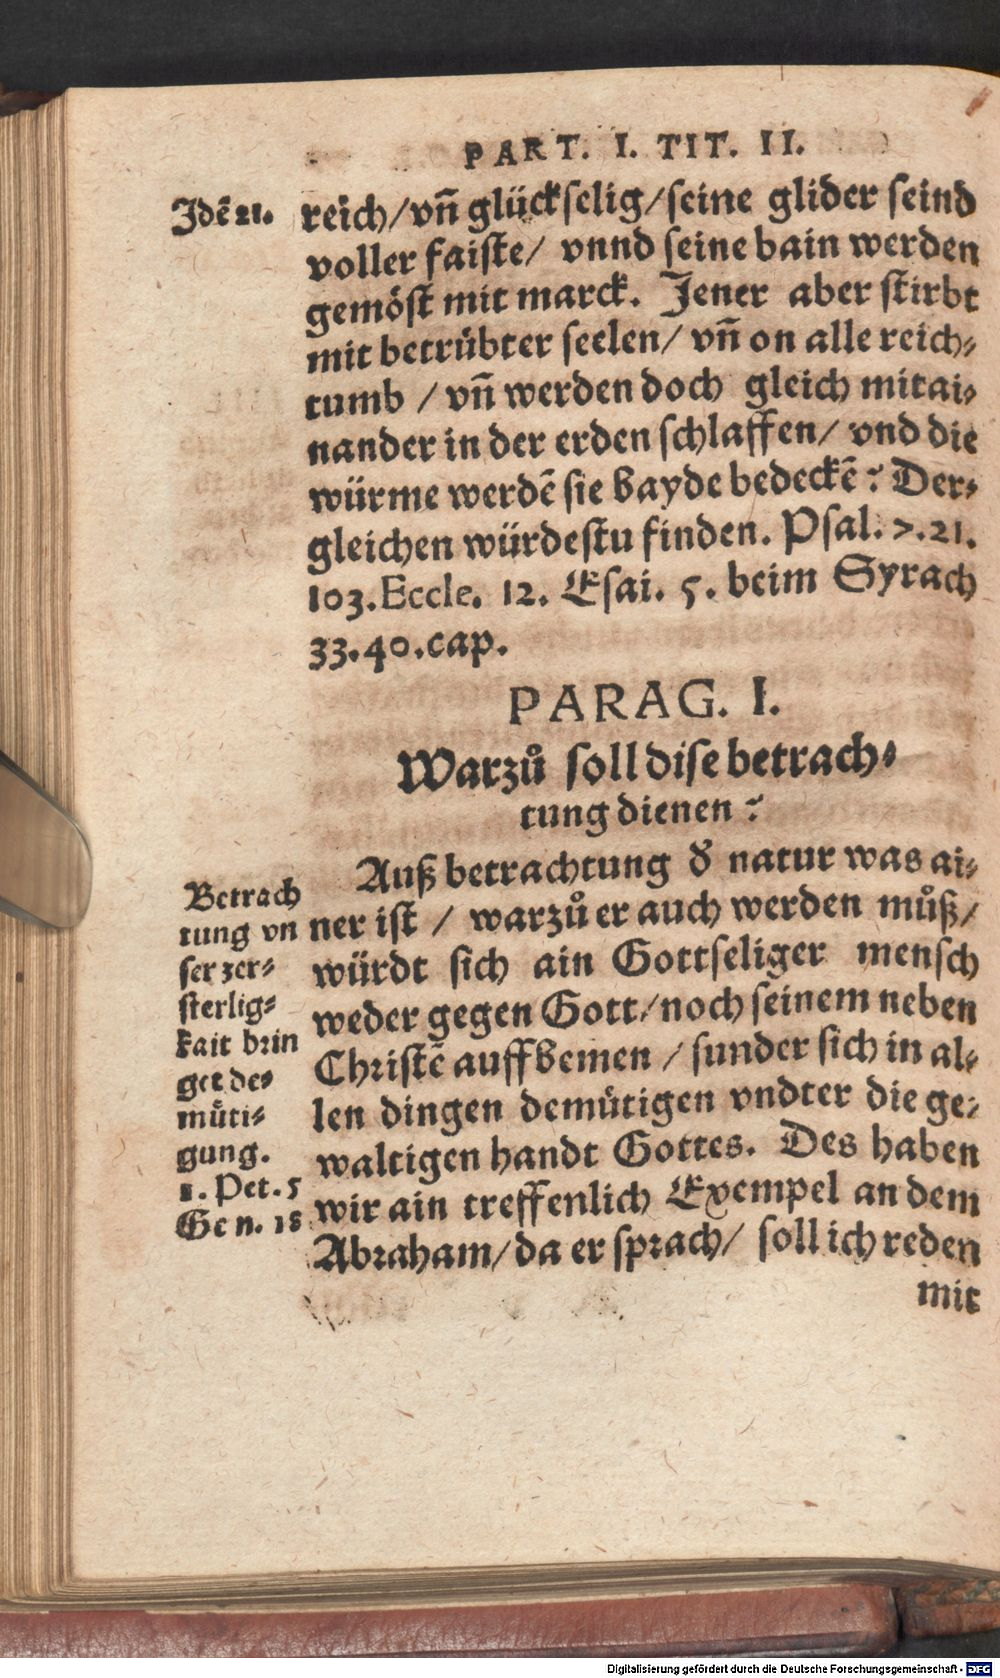 PART. I. TIT. II.
Idē 21.
reich/vn̄ glückselig/seine glider seind
voller faiste/ vnnd seine bain werden
gemöst mit marck. Jener aber stirbt
mit betrübter seelen/ vn̄ on alle reich⸗
tumb / vn̄ werden doch gleich mitai⸗
nander in der erden schlaffen/ vnd die
würme werdē sie bayde bedeckē? Der⸗
gleichen würdestu finden. Psal. 7. 21.
103. Eccle. 12. Esai. 5. beim Syrach
33. 40. cap.
PARAG. I.
Warzů soll dise betrach⸗
tung dienen?
Auß betrachtung d̛ natur was ai⸗
ner ist / warzů er auch werden můß/
würdt sich ain Gottseliger mensch
weder gegen Gott/ noch seinem neben
Christē auffbemen / sunder sich in al⸗
len dingen demütigen vndter die ge⸗
waltigen handt Gottes. Des haben
wir ain treffenlich Exempel an dem
Abraham/ da er sprach/ soll ich reden
mit
Betrach
tung vn
ser zer⸗
sterlig⸗
kait brin
get de⸗
müti⸗
gung.
1. Pet. 5
Gen. 18
Digitalisierung gefördert durch die Deutsche Forschungsgemeinschaft - DFG